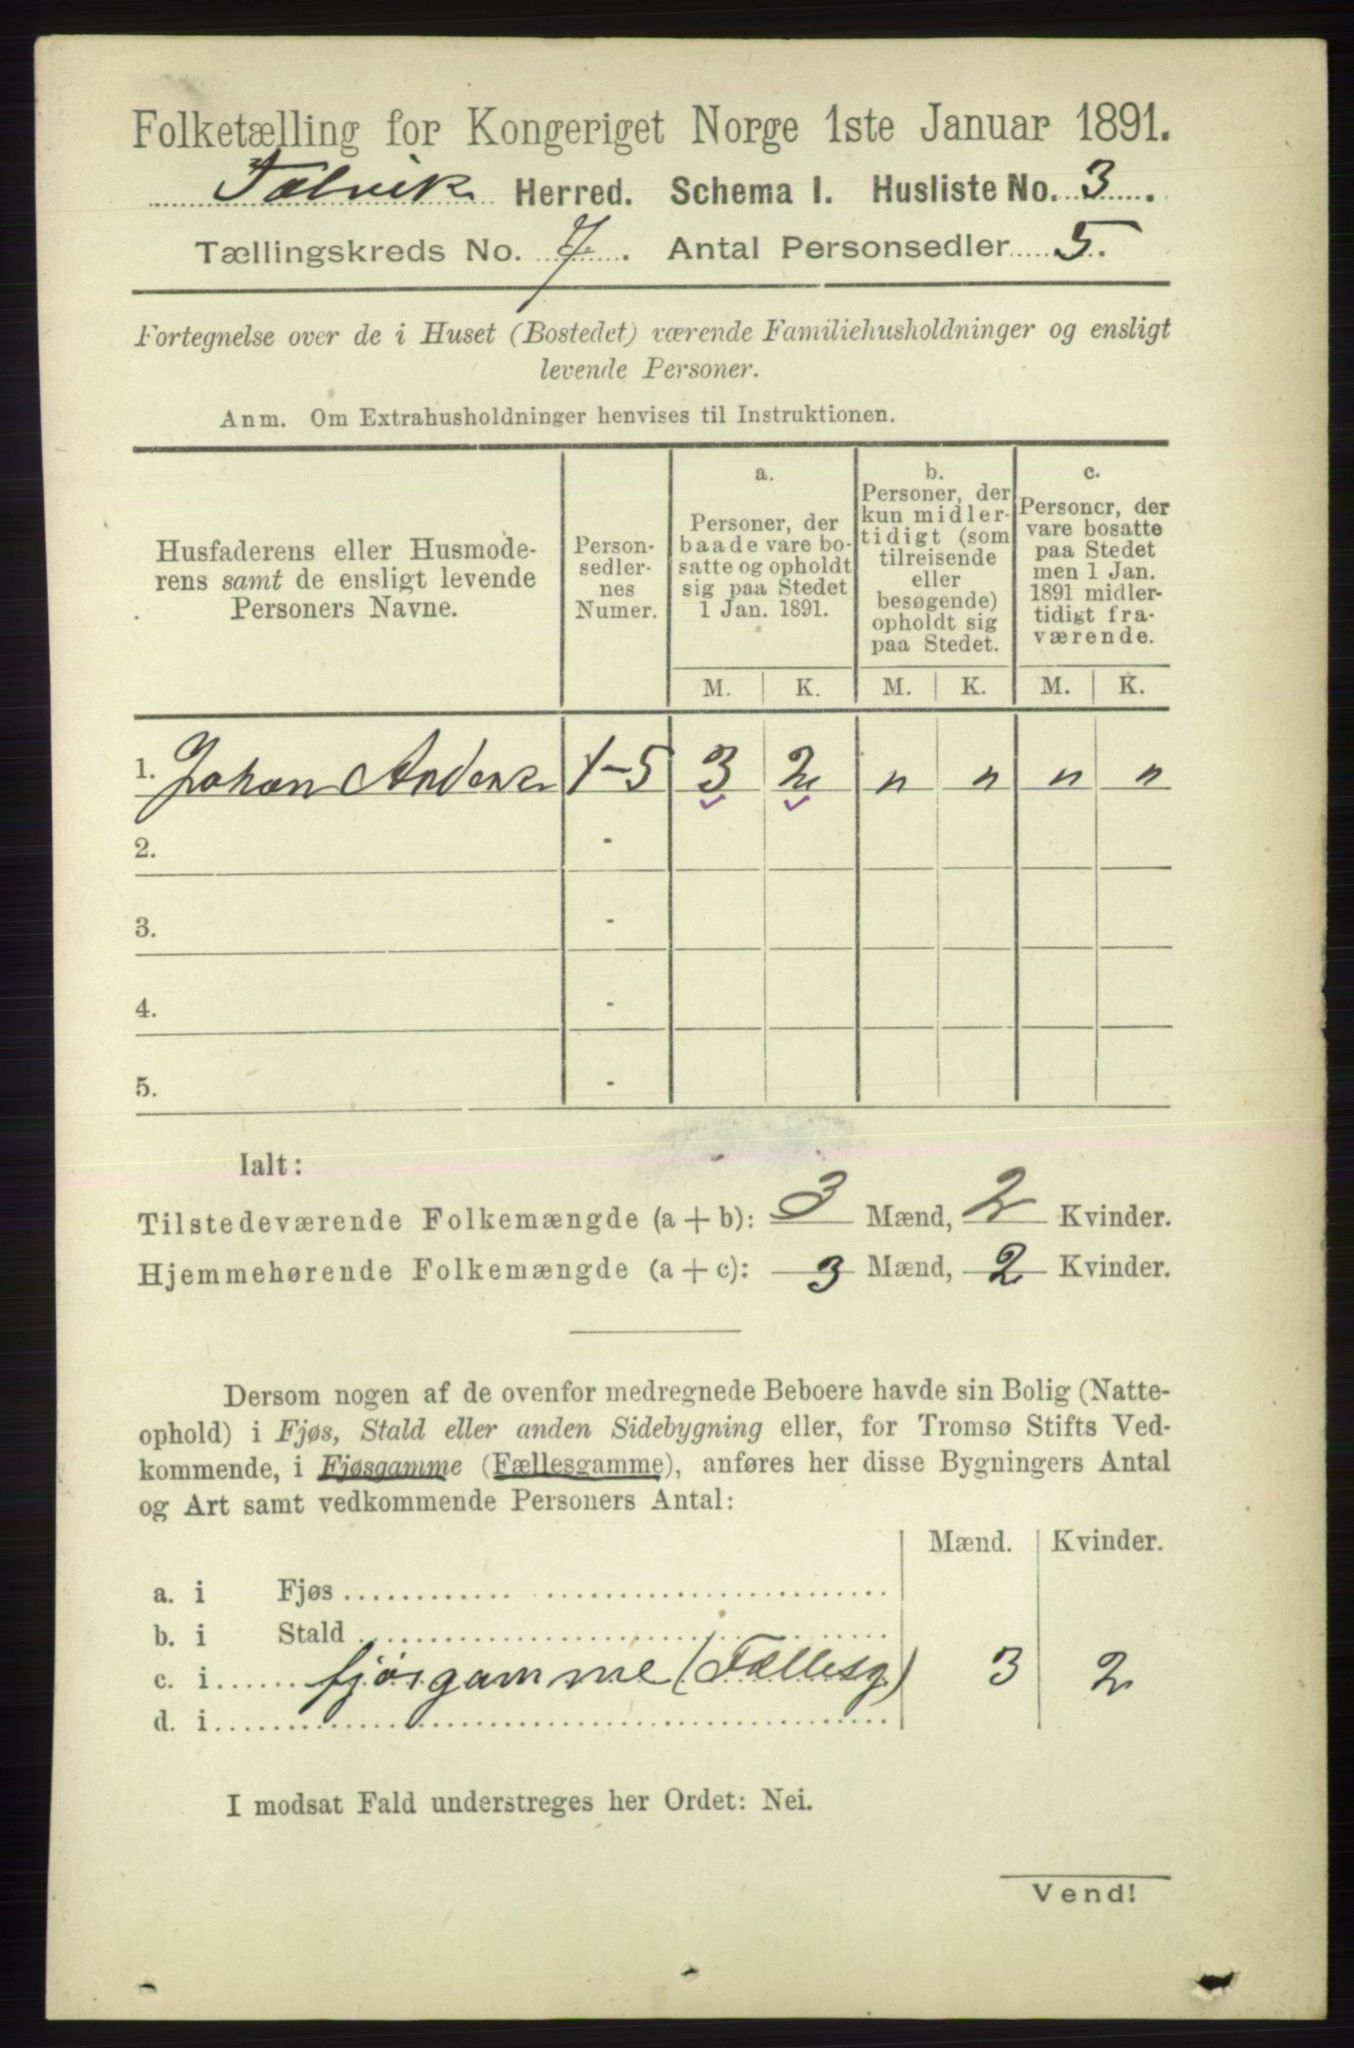 Folketælling for Kongeriget Norge 1ste Januar 1891.
Talvik Herred. Schema I. Husliste No. 3.
Tællingskreds No. 7. Antal Personsedler 5.
Fortegnelse over de i Huset (Bostedet) værende Familiehusholdninger og ensligt
levende Personer.
Anm. Om Extrahusholdninger henvises til Instruktionen.
Husfaderens eller Husmode-
rens samt de ensligt levende
Personers Navne.
Person-
sedler-
nes
Numer.
a.
Personer, der
baade vare bo-
satte og opholdt
sig paa Stedet
1 Jan. 1891.
b.
Personer, der
kun midler-
tidigt (som
tilreisende
eller
besøgende)
opholdt sig
paa Stedet.
c.
Personer, der
vare bosatte
paa Stedet
men 1 Jan.
1891 midler-
tidigt fra-
værende.
M. K. M. K. M. K.
1. Johan 1-5 3 2 " " " "
2. -
3. -
4. -
5. -
Ialt:
Tilstedeværende Folkemængde (a + b): 3 Mænd, 2 Kvinder.
Hjemmehørende Folkemængde (a + c): 3 Mænd, 2 Kvinder.
Dersom nogen af de ovenfor medregnede Beboere havde sin Bolig (Natte-
ophold) i Fjøs, Stald eller anden Sidebygning eller, for Tromsø Stifts Ved-
kommende, i Fjøsgamme (Fællesgamme), anføres her disse Bygningers Antal
og Art samt vedkommende Personers Antal:
Mænd. Kvinder.
a. i Fjøs
b. i Stald
c. i fjøsgamme (Fællesg) 3 2
d. i
I modsat Fald understreges her Ordet: Nei.
Vend!